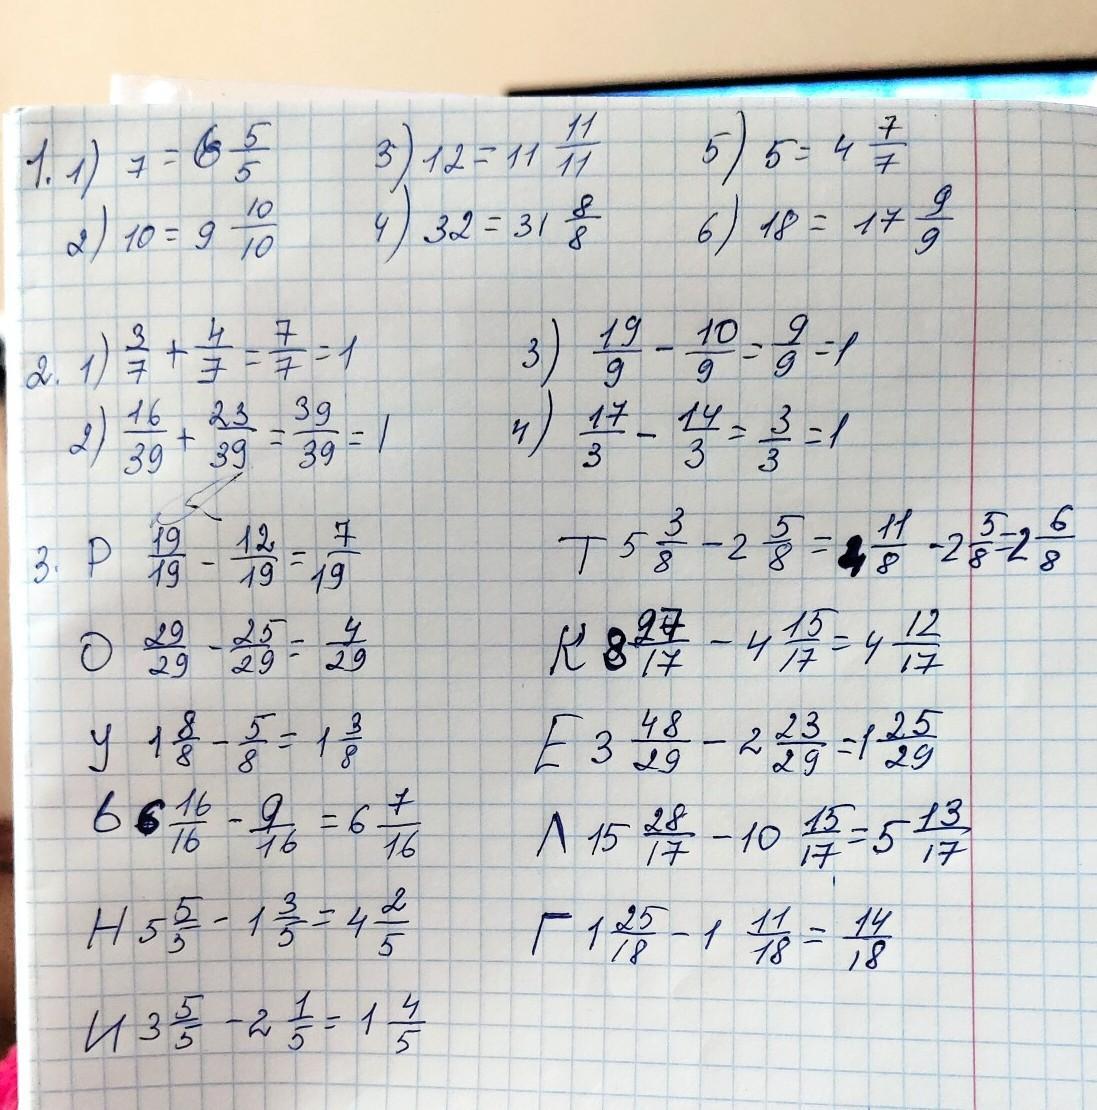 1. 1) 7 = 6 5/5 3) 12 = 11 11/11 5) 5 = 4 7/7
2) 10 = 9 10/10 4) 32 = 31 8/8 6) 18 = 17 9/9
2. 1) 3/7 + 4/7 = 7/7 = 1 3) 19/9 - 10/9 = 9/9 = 1
2) 16/39 + 23/39 = 39/39 = 1 4) 17/3 - 14/3 = 3/3 = 1
3. Р 19/19 - 12/19 = 7/19 Т 5 3/8 - 2 5/8 = 4 11/8 - 2 5/8 = 2 6/8
О 29/29 - 25/29 = 4/29 К 8 27/17 - 4 15/17 = 4 12/17
У 1 8/8 - 5/8 = 1 3/8 Е 3 48/29 - 2 23/29 = 1 25/29
В 6 16/16 - 9/16 = 6 7/16 Л 15 28/17 - 10 15/17 = 5 13/17
Н 5 5/5 - 1 3/5 = 4 2/5 Г 1 25/18 - 1 11/18 = 14/18
И 3 5/5 - 2 1/5 = 1 4/5